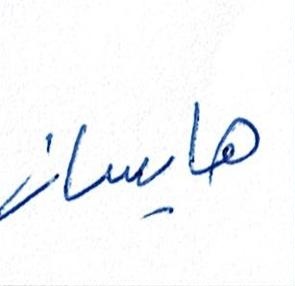 هایساز